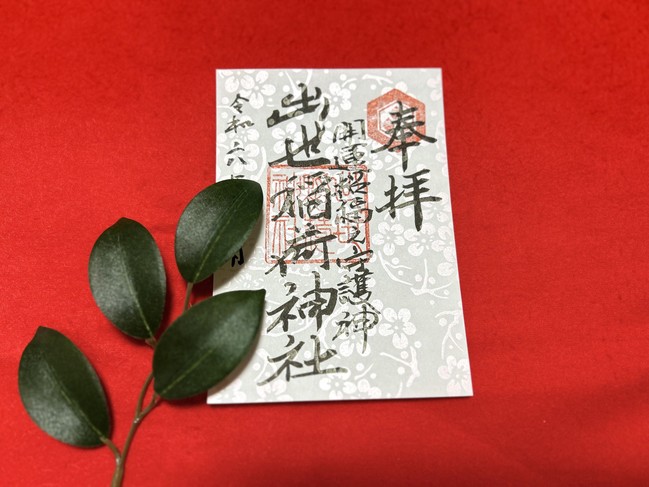 奉拝
開運招福之守護神
出世稲荷神社
令和六年
月